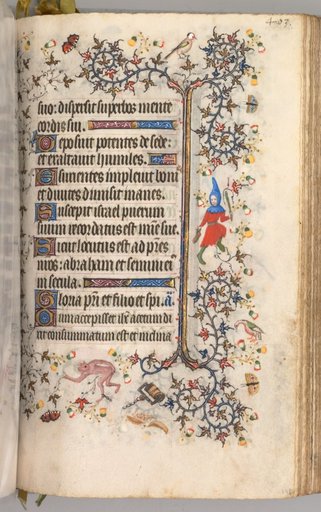 suo: dispersit superbos mente
cordis sui.
Deposuit potentes de sede:
et exaltauit humiles.
Esurientes impleuit boni
et diuites dimisit inanes.
Suscepit israel puerum
suum recordatus est mie sue.
Sicut locutus est ad pres
nros: abraham et semini ei
in secula.
Gloria pri et filio et spi.
Cum accepisset ihc acetum di
xit consummatum est et inclina